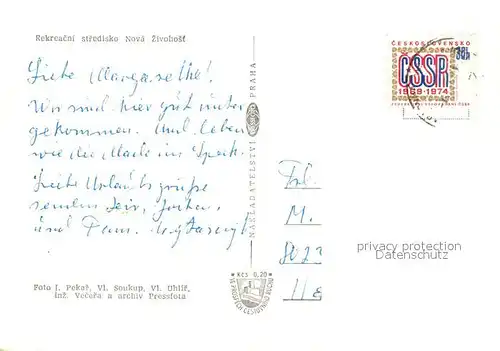 Rekreační středisko Nová Živohošť
Liebe Margarethe!
Wir sind hier gut unter
gekommen. Und leben
wie die Made im Speck.
Liebe Urlaubsgrüße
senden
und Fam.
Foto I. Pekař, Vl. Soukup, Vl. Uhlíř,
inž. Večeřa a archiv Pressfota
NAKLADATELSTVÍ PRAHA
Kčs 0,20
ČESKOSLOVENSKO
30h
ČSSR
1969-1974
Frl.
M.
privacy protection
Datenschutz